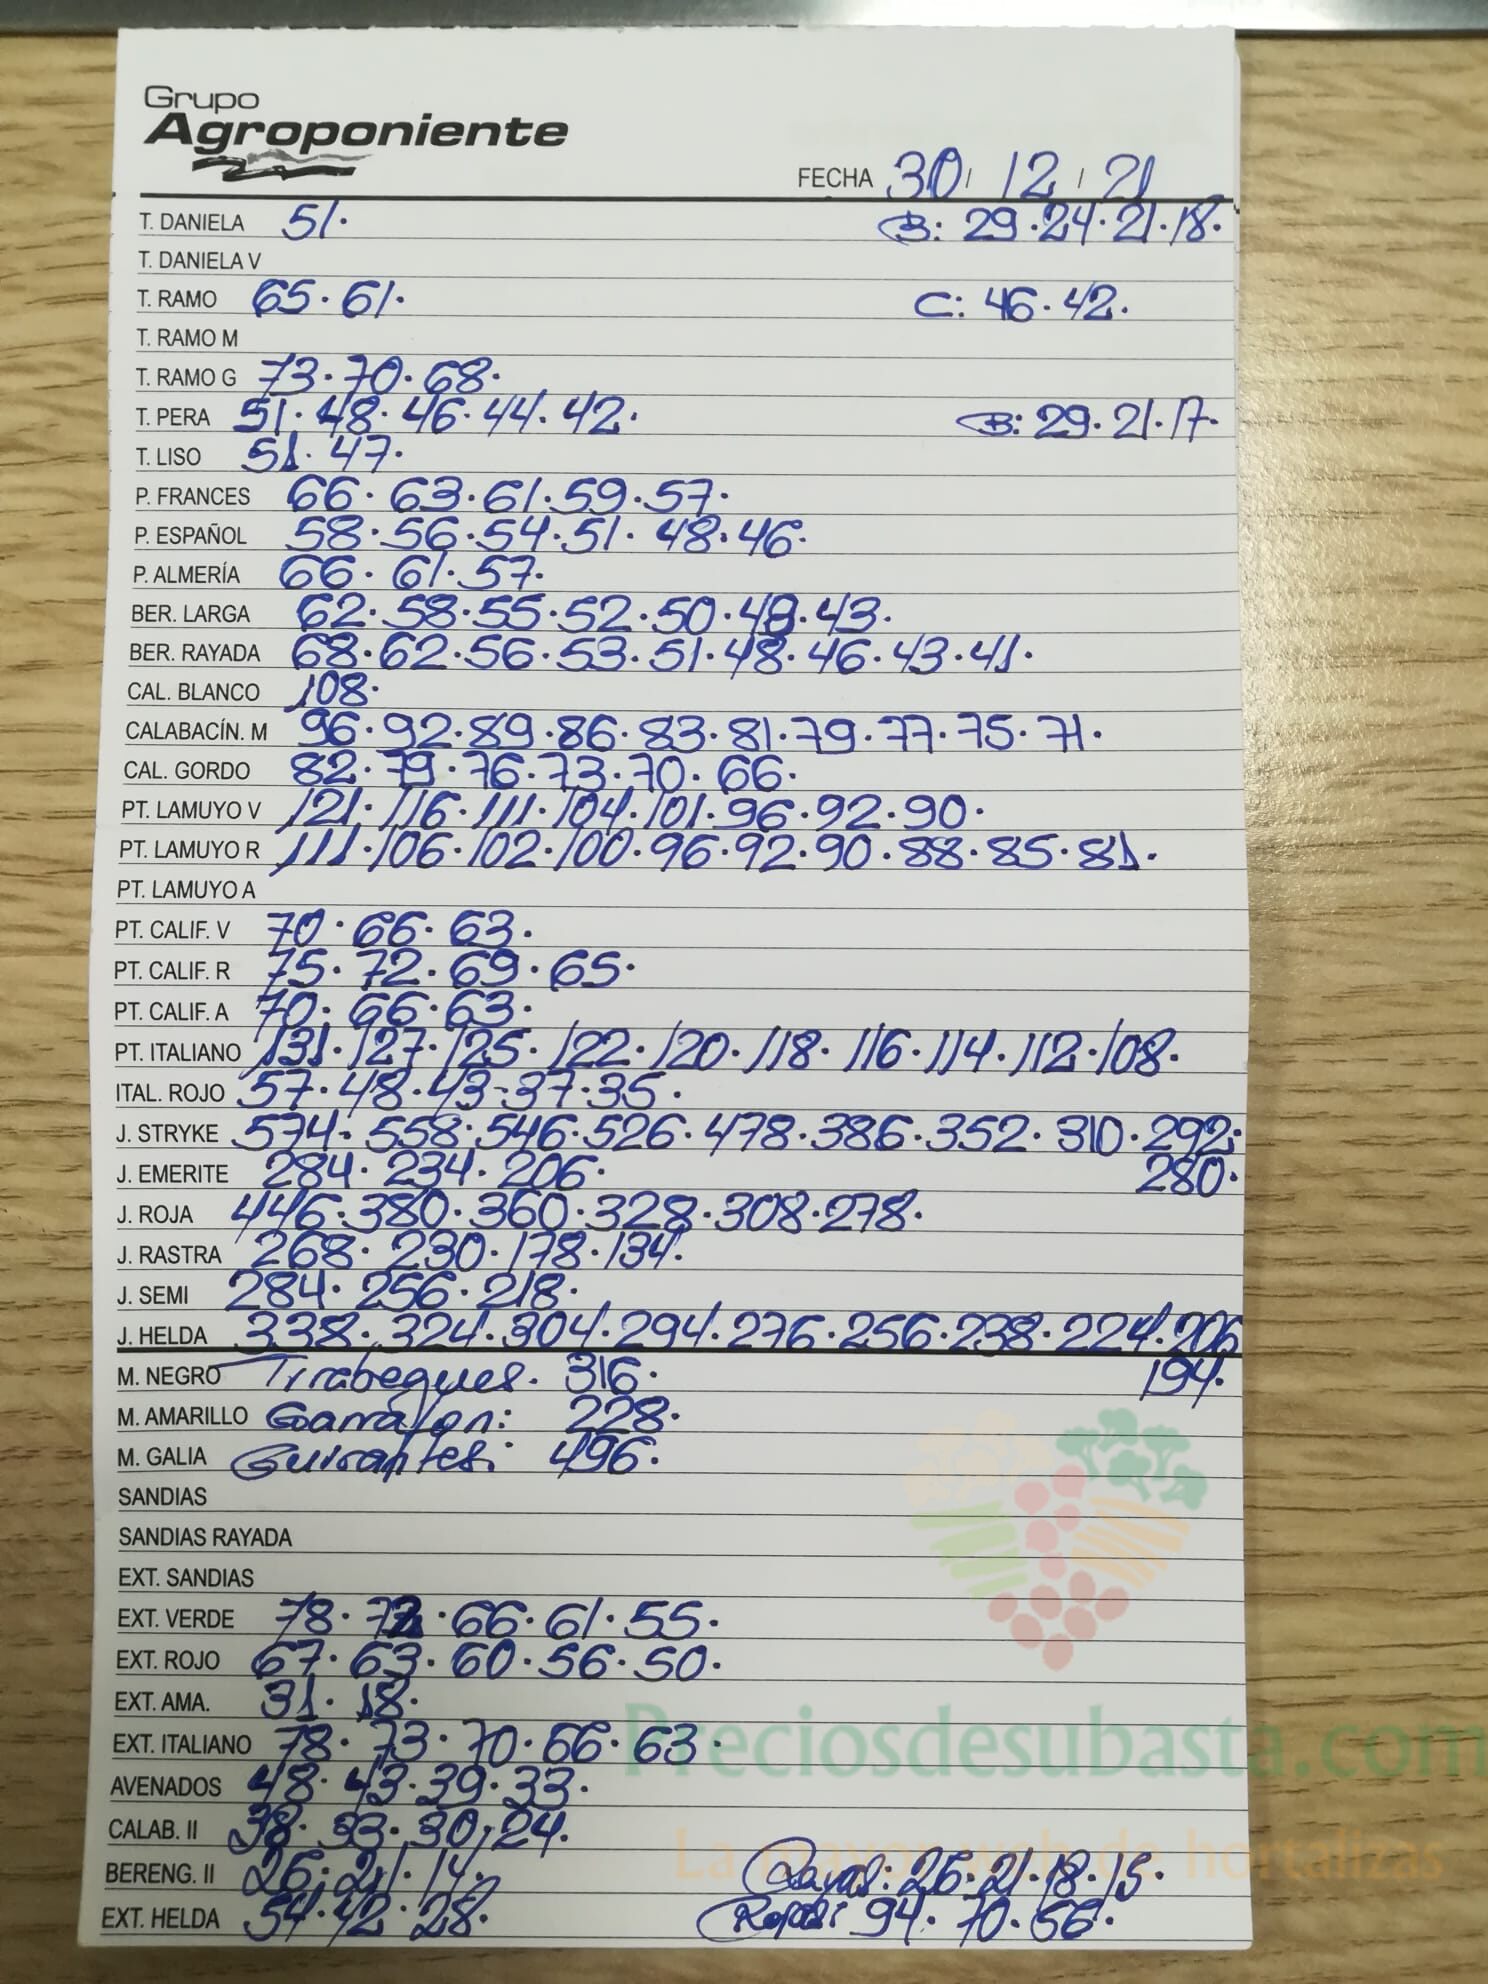 Grupo
Agroponiente
FECHA 30/ 12 / 21
T. DANIELA 51. B: 29.24.21.18.
T. DANIELA V
T. RAMO 65.61. C: 46.42.
T. RAMO M
T. RAMO G 73.70.68.
T. PERA 51.48.46.44.42. B: 29.21.17.
T. LISO 51.47.
P. FRANCES 66.63.61.59.57.
P. ESPAÑOL 58.56.54.51.48.46.
P. ALMERÍA 66.61.57.
BER. LARGA 62.58.55.52.50.48.43.
BER. RAYADA 68.62.56.53.51.48.46.43.41.
CAL. BLANCO 108.
CALABACÍN. M 96.92.89.86.83.81.79.77.75.71.
CAL. GORDO 82.79.76.73.70.66.
PT. LAMUYO V 121.116.111.104.101.96.92.90.
PT. LAMUYO R 111.106.102.100.96.92.90.88.85.81.
PT. LAMUYO A
PT. CALIF. V 70.66.63.
PT. CALIF. R 75.72.69.65.
PT. CALIF. A 70.66.63.
PT. ITALIANO 131.127.125.122.120.118.116.114.112.108.
ITAL. ROJO 57.48.43.37.35.
J. STRYKE 574.558.546.526.478.386.352.310.292.
J. EMERITE 284.234.206. 280.
J. ROJA 446.380.360.328.308.278.
J. RASTRA 268.230.178.134.
J. SEMI 284.256.218.
J. HELDA 338.324.304.294.276.256.238.224.206
M. NEGRO Tirabeques. 316. 194.
M. AMARILLO Garrafon: 228.
M. GALIA Guisantes: 496.
SANDIAS
SANDIAS RAYADA
EXT. SANDIAS
EXT. VERDE 78.72.66.61.55.
EXT. ROJO 67.63.60.56.50.
EXT. AMA. 31.18.
EXT. ITALIANO 78.73.70.66.63.
Preciosdesubasta.com
AVENADOS 48.43.39.33.
CALAB. II 38.33.30.24.
La mayor web de hortalizas
BERENG. II 26.21.14. Rayas: 26.21.18.15.
EXT. HELDA 54.42.28. 94.70.56.